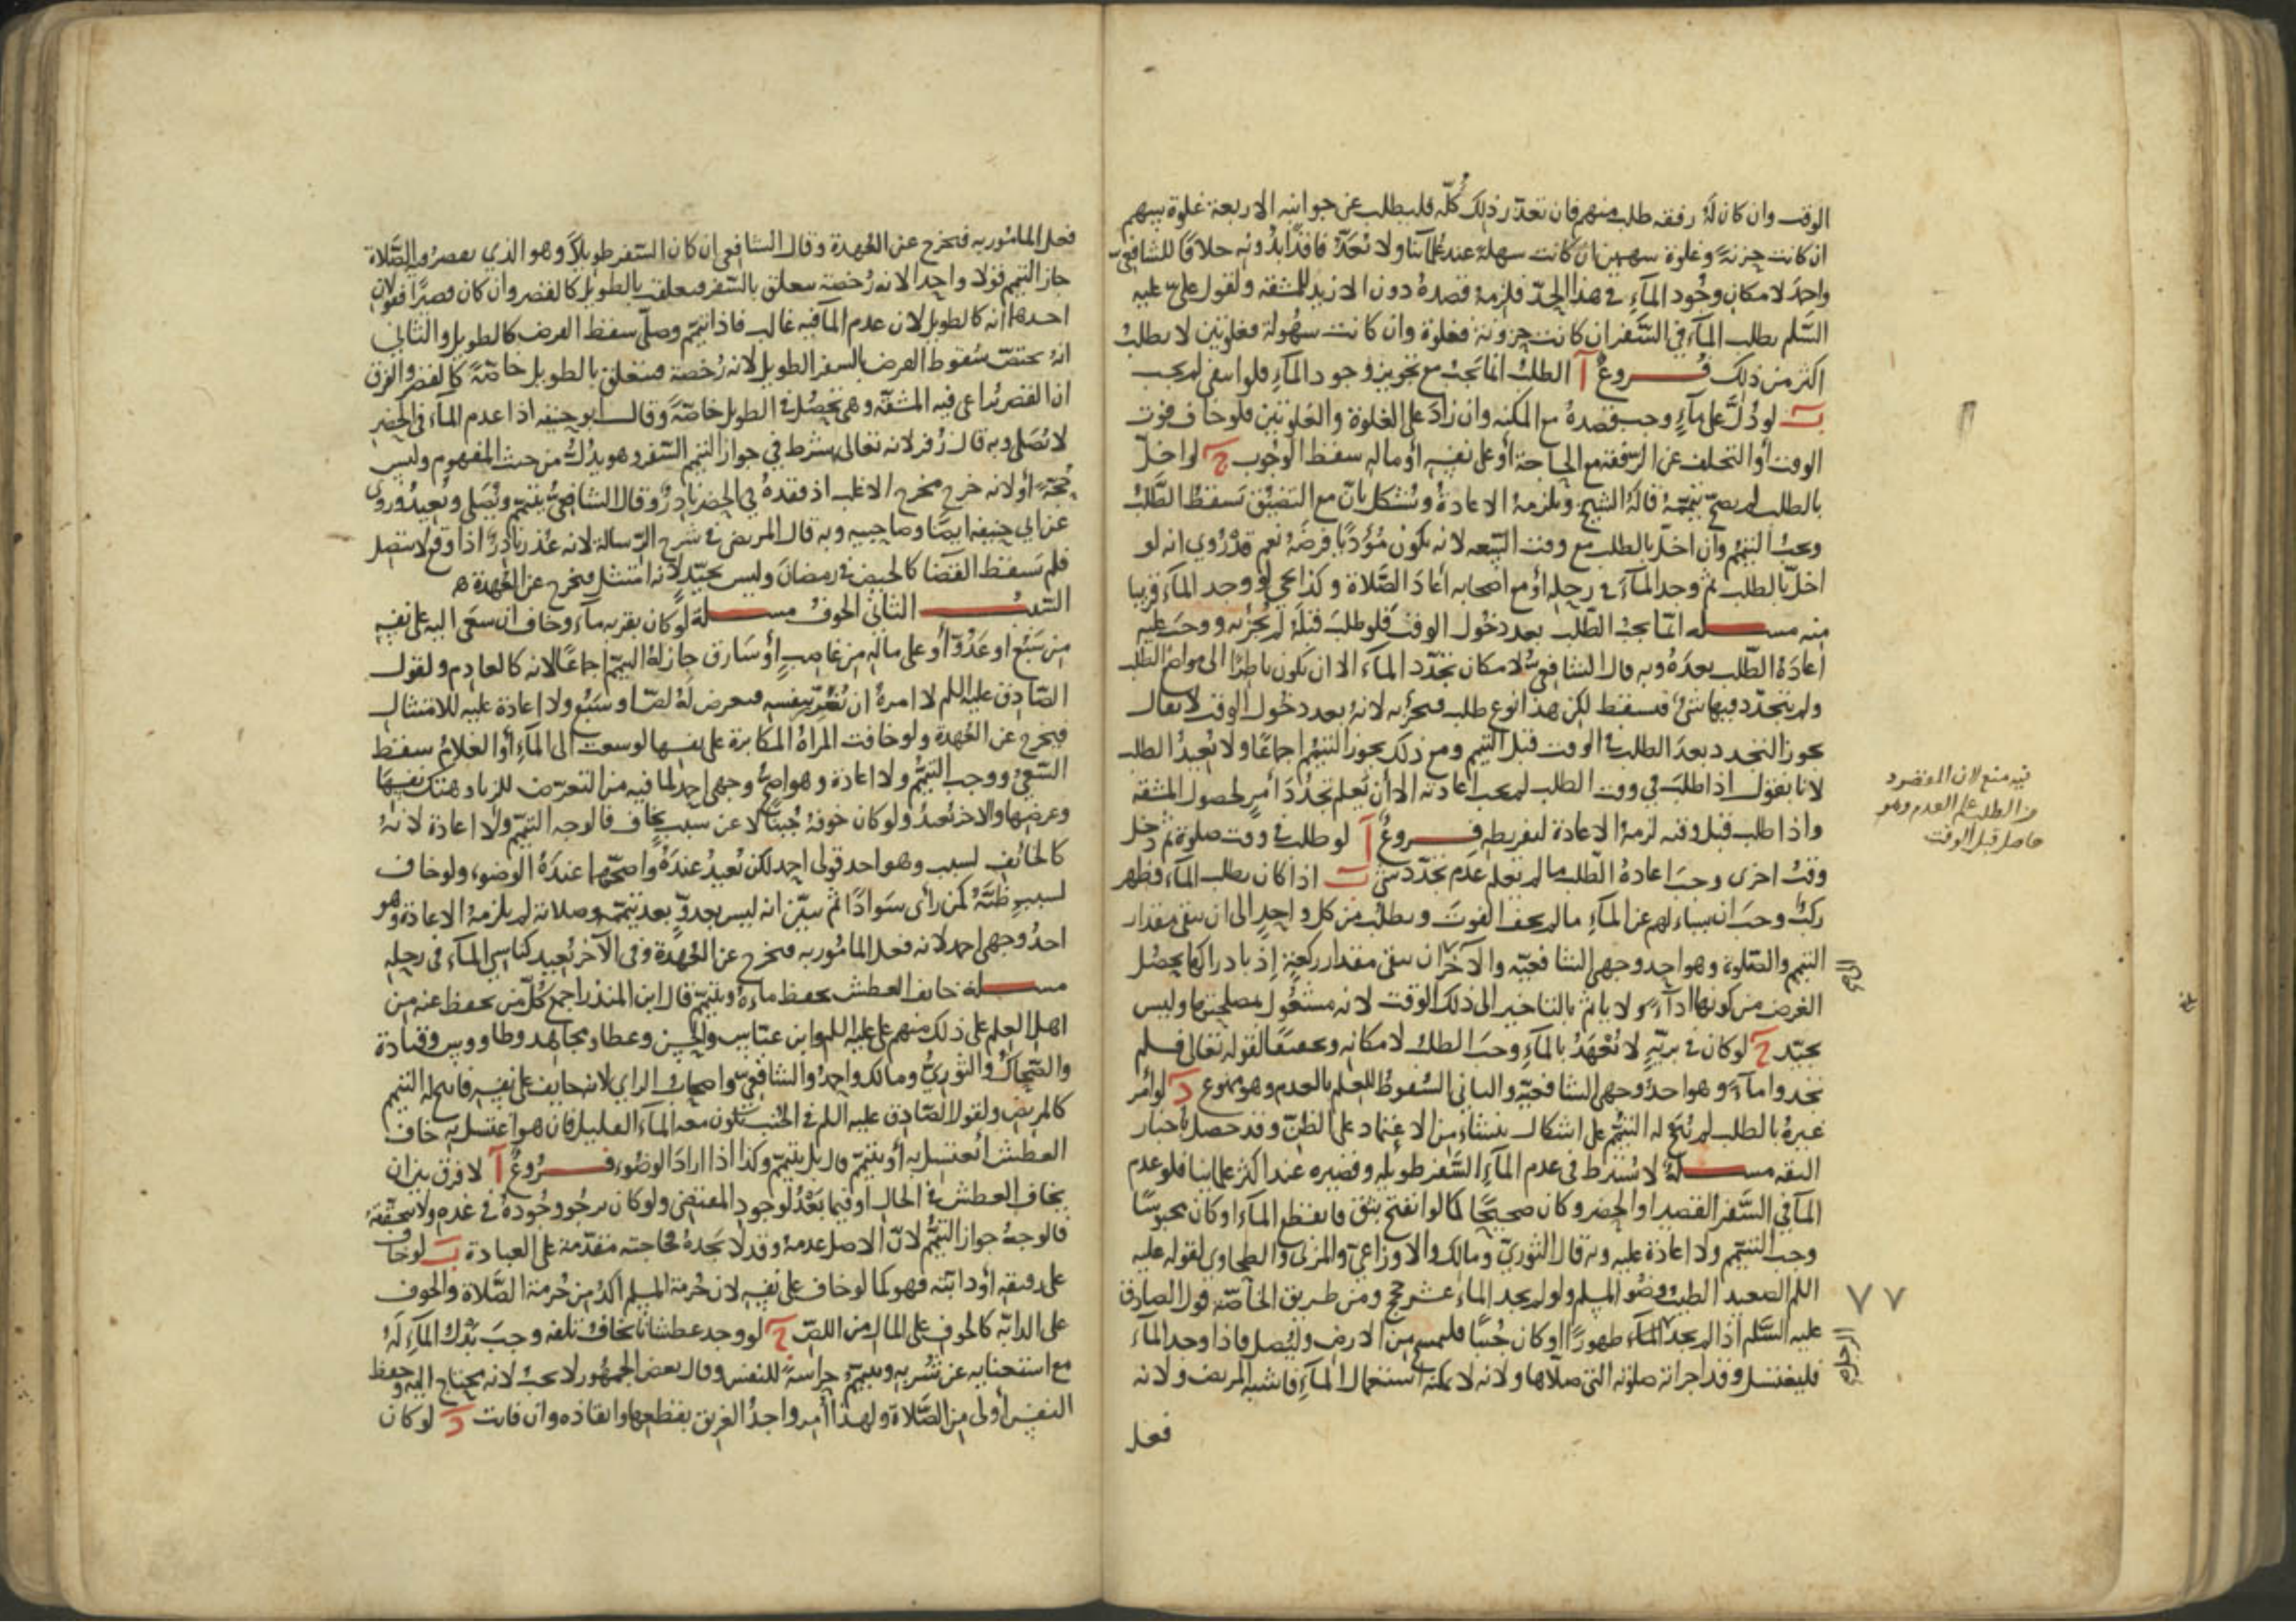 الوقت وان كان له رفقه طلب منهم فان تعذر ذلك كله فليطلب عن جوانبه الاربعة غلوة بسهم
ان كانت حزنة وغلوة سهمين ان كانت سهلة عند علمائنا ولا نعده فاقدا بدونه خلافا للشافعي
واحمد لامكان وجود الماء في هذا الحد فلزمه قصده دون الازيد للمشقه ولقول علي عليه
السلم يطلب الماء في السفر ان كانت حزونة فغلوة وان كانت سهولة فغلوتين لا يطلب
اكثر من ذلك فروع آ الطلب انما يجب مع تجويز وجود الماء فلو انتفى لم يجب
ب لو دل على ماء وجب قصده مع المكنه وان زاد على الغلوة والغلوتين فلو خاف فوت
الوقت أو التخلف عن الرفقة مع الحاجة أو على نفسه أو ماله سقط الوجوب ج لو اخل
بالطلب لم يصح تيممه قاله الشيخ ويلزمه الاعادة ويشكل بان مع التضيق تسقط الطلب
ويجب التيمم وان اخل بالطلب مع وقت السعه لانه يكون مؤديا فرضه نعم قد روي انه لو
اخل بالطلب ثم وجد الماء في رحله أو مع اصحابه اعاد الصلاة وكذا يجي لو وجد الماء قريبا
منه مسـله انما يجب الطلب بعد دخول الوقت فلو طلب قبله لم يجزئه ووجب عليه
اعادة الطلب بعده وبه قال الشافعي لامكان تجدد الماء الا ان يكون ناظرا الى مواضع الطلب
ولم يتجدد فيها شي فيسقط لكن هذا نوع طلب فيجزئه لانه بعد دخول الوقت لا يقال
يجوز التجدد بعد الطلب في الوقت قبل التيمم ومع ذلك يجوز التيمم اجماعا ولا يعيد الطلب
لانا نقول اذا طلب في وقت الطلب لم يجب اعادته الا ان يعلم تجدد أمر لحصول المشقة
واذا طلب قبل وقته لزمه الاعادة لتفريطه فروع آ لو طلب في وقت صلوة ثم دخل
وقت اخرى وجب اعادة الطلب ما لم يعلم عدم تجدد شي ب اذا كان يطلب الماء فظهر
ركب وجب ان يسالهم عن الماء ما لم يخف الفوت ويطلب من كل واحد الى ان يبقى مقدار
التيمم والصلوة وهو احد وجهي الشافعيه والآخر ان يبقى مقدار ركعة إذ بادراكها يحصل
الغرض من كونها اداء ولا ياثم بالتاخير الى ذلك الوقت لانه مشغول بمصلحتها وليس
بجيد ج لو كان في برية لا تعهد بالماء وجب الطلب لامكانه وتحقيقا لقوله تعالى فلم
تجدوا ماء وهو احد وجهي الشافعية والثاني السقوط للعلم بالعدم وهو ممنوع د لو أمر
غيره بالطلب لم يبح له التيمم على اشكال ينشاء من الاعتماد على الظن وقد حصل باخبار
الثقه مسـله لا يشترط في عدم الماء السفر طويله وقصيره عند اكثر علمائنا فلو عدم
الما في السفر القصير او الحضر وكان صحيحا كما لو انفتح بثق فانقطع الماء او كان محبوسا
وجب التيمم ولا اعادة عليه وبه قال الثوري ومالك والاوزاعي والمزني والطحاوي لقوله عليه
اللم الصعيد الطيب وضو المسلم ولو لم يجد الماء عشر حجج ومن طريق الخاصة قول الصادق
عليه السلم اذا لم يجد الماء طهورا او كان جنبا فليمسح من الارض وليصل فاذا وجد الماء
فليغتسل وقد اجزأته صلوته التي صلاها ولانه لا يمكنه استعمال الماء فاشبه المريض ولانه
فعل
فيه منع لان المقصود
من الطلب علم العدم وهو
حاصل قبل الوقت
٧٧
فعل المامور به فيخرج عن العهدة وقال الشافعي ان كان السفر طويلا وهو الذي يقصر فيه الصلاة
جاز التيمم قولا واحدا لانه رخصة يتعلق بالسفر فيتعلق بالطويل كالقصر وان كان قصيرا فقولان
احدهما انه كالطويل لان عدم الما فيه غالب فاذا تيمم وصلى سقط الفرض كالطويل والثاني
انه يختص سقوط الفرض بالسفر الطويل لانه رخصة فيتعلق بالطويل خاصة كالقصر والفرق
ان القصر يراعى فيه المشقه وهي تحصل في الطويل خاصة وقال ابو حنيفه اذا عدم الماء في الحضر
لا يصلي وبه قال زفر لانه تعالى شرط في جواز التيمم السفر وهو يدل من حيث المفهوم وليس
بحجة أو لانه خرج مخرج الاغلب اذ فقده في الحضر نادر وقال الشافعي يتيمم ويصلي ويعيد وروي
عن ابي حنيفه ايضا وصاحبيه وبه قال المرتضى في شرح الرسالة لانه عذر نادر اذا وقع لا يتصل
فلم يسقط القضا كالحيض في رمضان وليس بجيد لانه امتثل فخرج عن العهدة ه
السبب الثاني الخوف مسـلة لو كان بقربه ماء وخاف ان سعى اليه على نفسه
من سبع او عدو أو على ماله من غاصب أو سارق جاز له التيمم اجماعا لانه كالعادم ولقول
الصادق عليه اللم لا امره ان يغرر بنفسه فيعرض له لص او سبع ولا اعادة عليه للامتثال
فيخرج عن العهدة ولو خافت المراة المكابرة على نفسها لو سعت الى الماء أو الغلام سقط
السعي ووجب التيمم ولا اعادة وهو اصح وجهي احمد لما فيه من التعرض للزنا وهتك نفسها
وعرضها والاخر تعيد ولو كان خوفه جبنا لا عن سبب يخاف فالوجه التيمم ولا اعادة لانه
كالخائف لسبب وهو احد قولي احمد لكن يعيد عنده واصحهما عنده الوضوء ولو خاف
لسبب ظنه كمن رأى سوادا ثم تبين انه ليس بعدو بعد تيممه وصلاته لم يلزمه الاعادة وهو
احد وجهي احمد لانه فعل المامور به فيخرج عن العهدة وفي الآخر يعيد كناسي الماء في رحله
مسـلة خايف العطش يحفظ ماءه ويتيمم قال ابن المنذر اجمع كل من يحفظ عنه من
اهل العلم على ذلك منهم علي عليه اللم وابن عباس والحسن وعطا ومجاهد وطاووس وقتادة
والضحاك والثوري ومالك واحمد والشافعي واصحاب الراي لانه خايف على نفسه فابيح له التيمم
كالمريض ولقول الصادق عليه اللم في الجنب يكون معه الماء القليل فان هو اغتسل به خاف
العطش أيغتسل به أو يتيمم قال بل يتيمم وكذا اذا اراد الوضوء فروع آ لا فرق بين ان
يخاف العطش في الحال او فيما بعد لوجود المقتضي ولو كان يرجو وجوده في غده ولا يتحققه
فالوجه جواز التيمم لان الاصل عدمه وقد لا يجده فحاجته مقدمة على العبادة ب لو خاف
على رفيقه أو دابته فهو كما لو خاف على نفسه لان حرمة المسلم اكد من حرمة الصلاة والخوف
على الدابه كالخوف على المال من اللص ج لو وجد عطشانا يخاف تلفه وجب بذل الماء له
مع استغنايه عن شربه ويتيمم حراسة للنفس وقال بعض الجمهور لا يجب لانه يحتاج اليه وحفظ
النفس أولى من الصلاة ولهذا أمر واجد الغريق بقطعها وانقاذه وان فاتت د لو كان